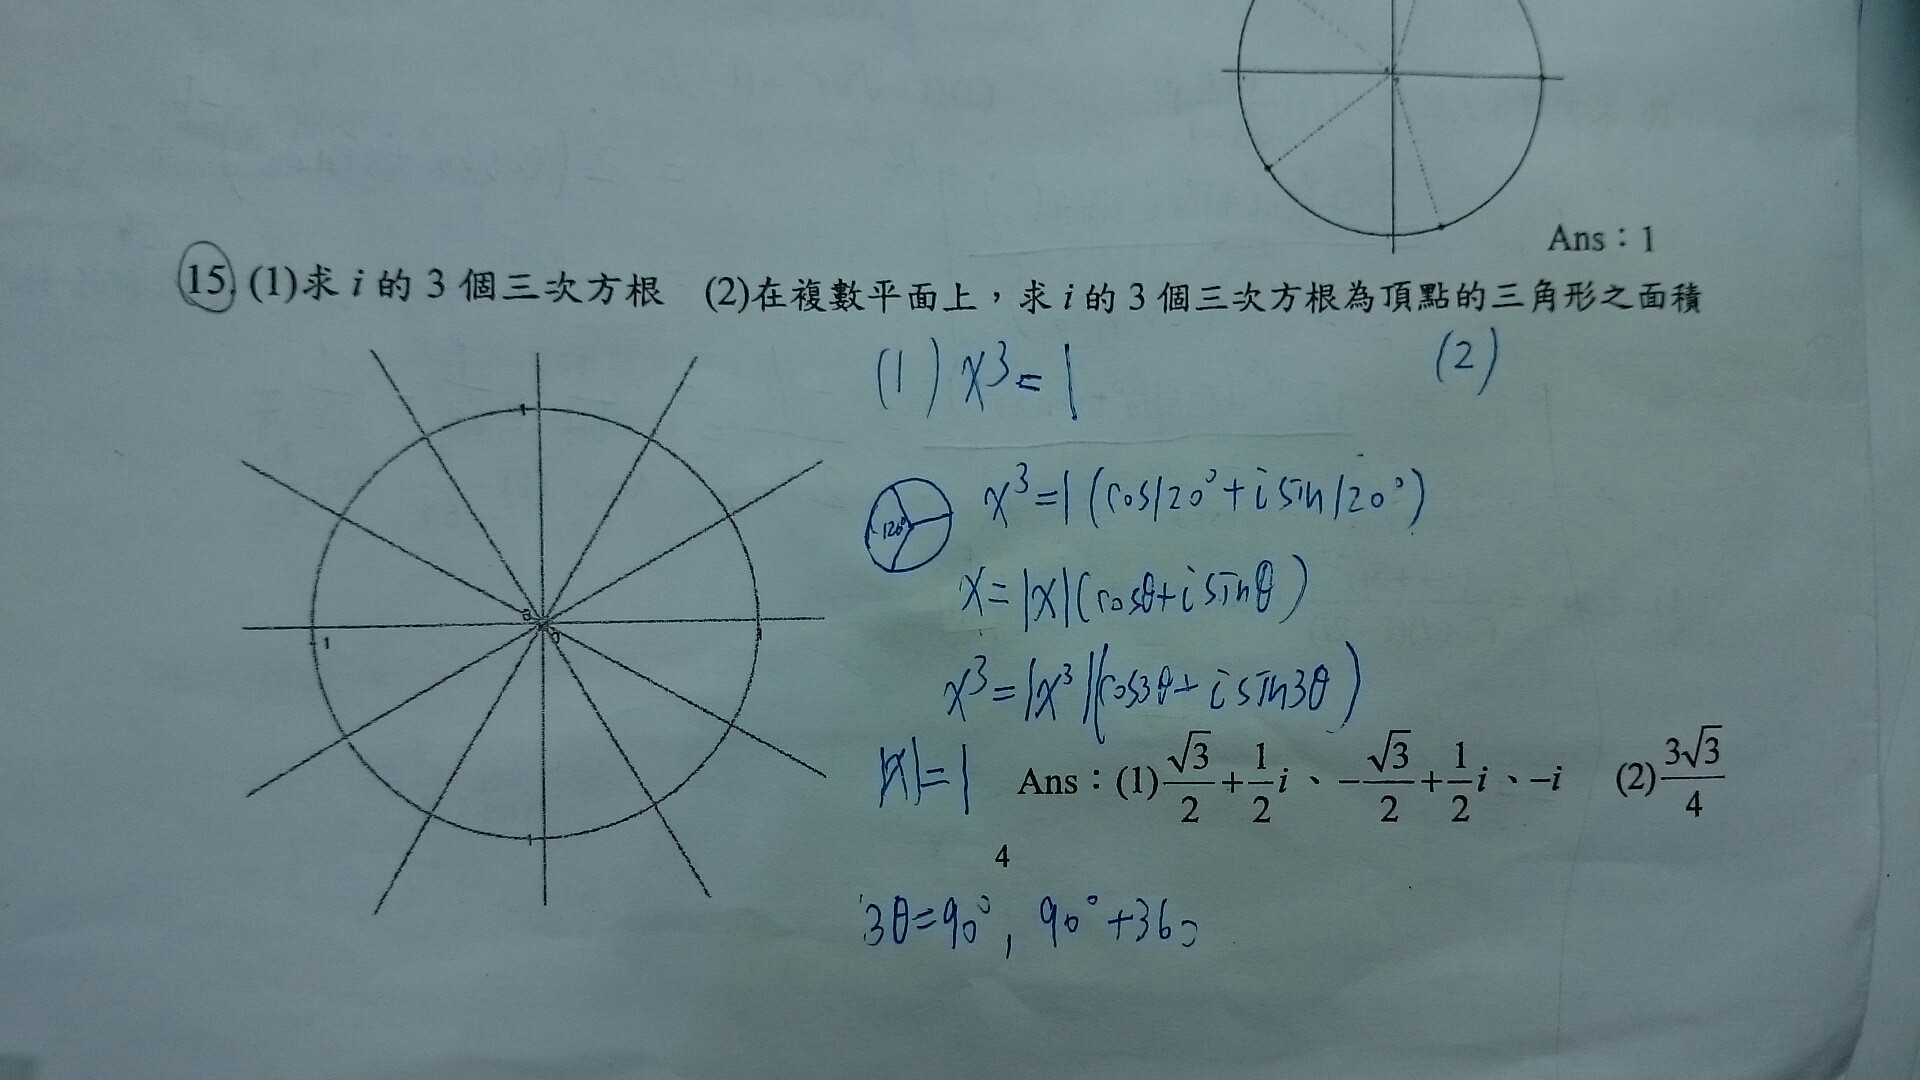 Ans：1
15. (1)求 i 的 3 個三次方根 (2)在複數平面上，求 i 的 3 個三次方根為頂點的三角形之面積
(1) x³=1
(2)
x³=1(cos120°+i sin120°)
120°
x=|x|(cosθ+i sinθ)
-1
x³=|x³|(cos3θ+i sin3θ)
|x|=1
Ans：(1) √3/2+1/2 i、-√3/2+1/2 i、-i (2) 3√3/4
4
3θ=90°, 90°+360